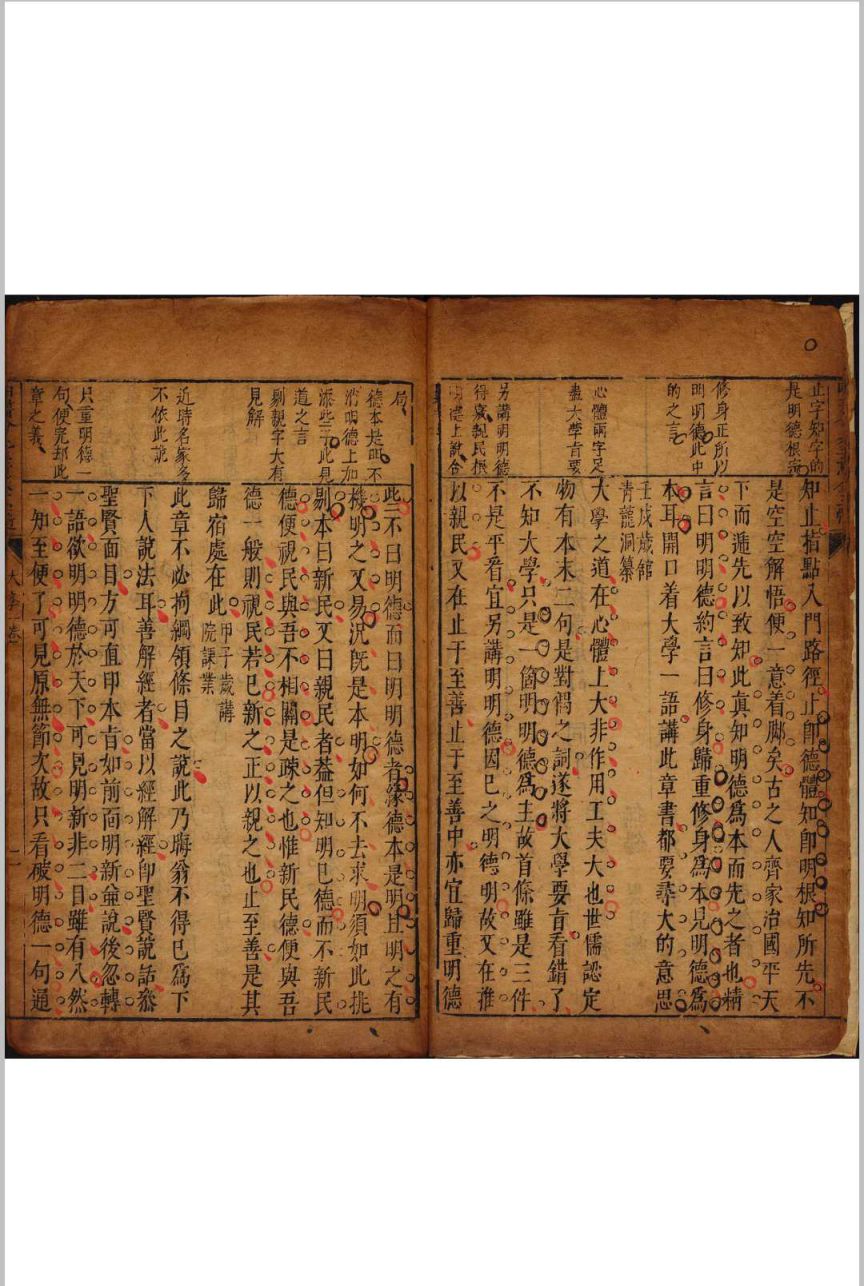 止字知字的
是明德根
知止指點入門路徑止卽德體知卽明根知所先不
是空空解悟便一意着脚矣古之人齊家治國平天
下而遞先以致知此眞知明德爲本而先之者也精
修身正所以
明明德此中
的之言
言曰明明德約言曰修身歸重修身爲本見明德爲
本耳開口着大學一語講此章書都要尋大的意思
壬戌歲館
青龍洞纂
心體兩字足
盡大學㫖要
大學之道在心體上大非作用工夫大也世儒認定
物有本末二句是對偶之詞遂將大學要㫖看錯了
不知大學只是一箇明明德爲主故首條雖是三件
另講明明德
得親民根
明處上說合
不是平看宜另講明明德因巳之明德明故又在推
以親民又在止于至善止于至善中亦宜歸重明德
局
德本是明不
消明德上加
添些子此見
道之言
剔親字大有
見解
些不曰明德而曰明明德者緣德本是明且明之有
機明之又易况旣是本明如何不去求明須如此挑
剔本曰新民又曰親民者葢但知明巳德而不新民
德便視民與吾不相關是疎之也惟新民德便與吾
德一般則視民若巳新之正以親之也止至善是其
歸宿處在此
甲子歲講
院課業
近時名家多
不依此說
此章不必拘綱領條目之說此乃晦翁不得巳爲下
下人說法耳善解經者當以經解經卽聖賢說話叅
聖賢面目方可直印本㫖如前面明新並說後忽轉
只重明德一
句便完却此
章之義
一語欲明明德於天下可見明新非二目雖有八然
一知至便了可見原無節次故只看破明德一句通